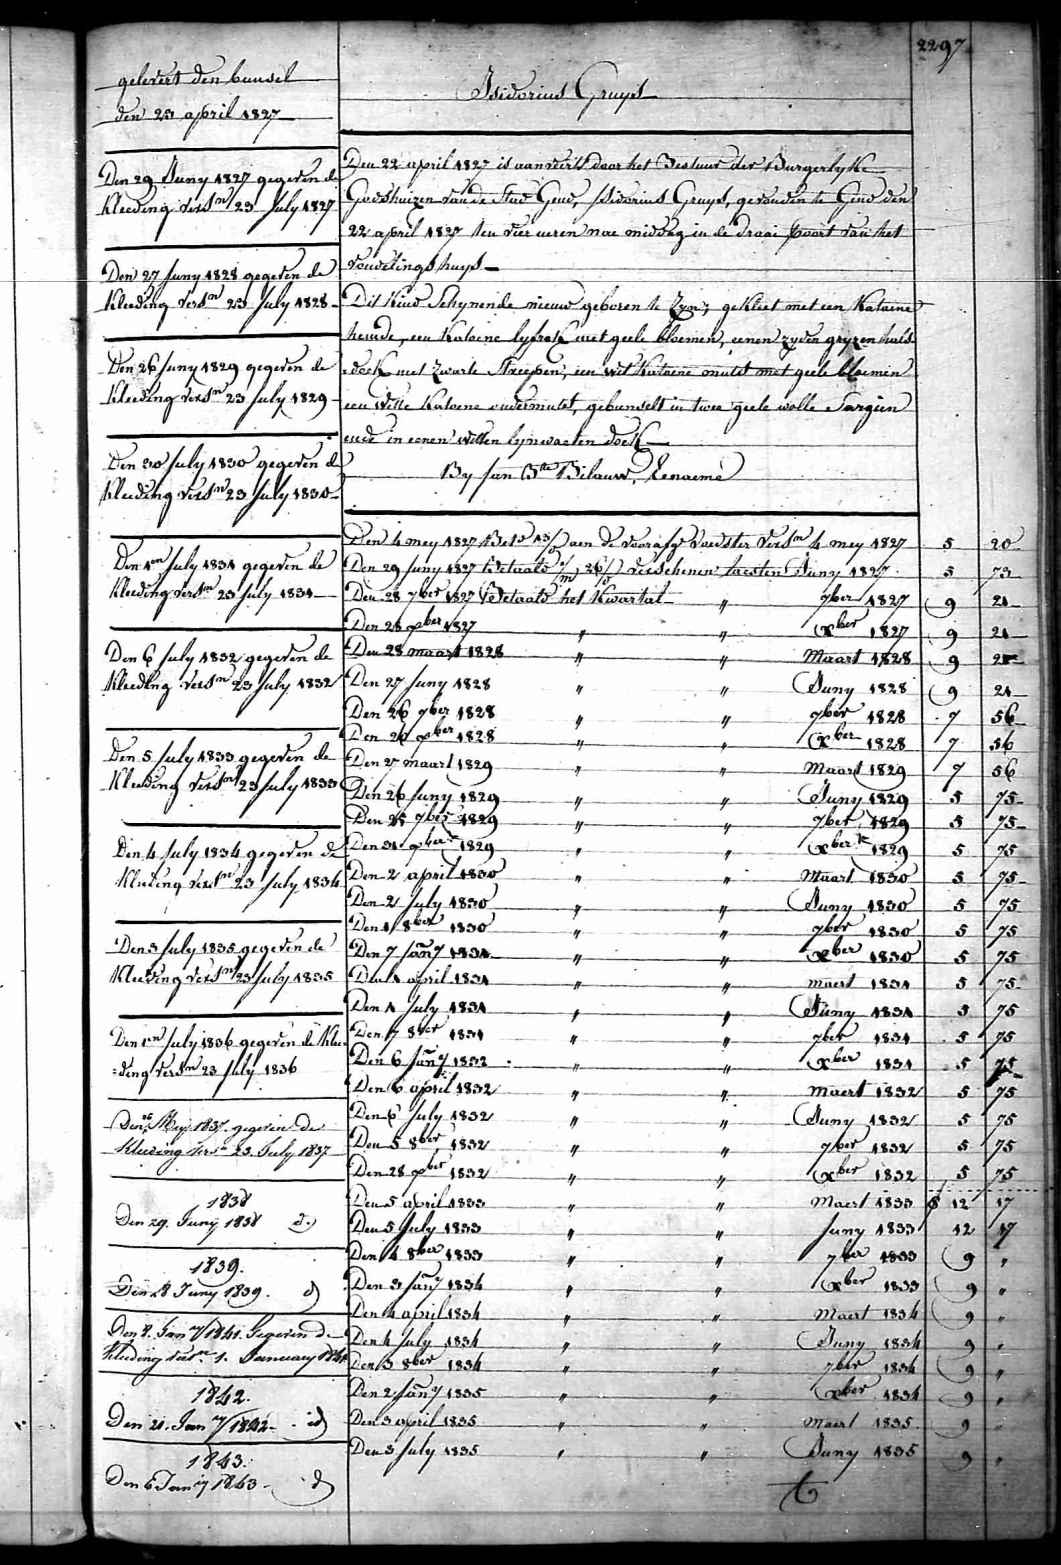 2297
gelevert den bunsel
den 23 april 1827
Den 29 Juny 1827 gegeven de
kleeding versn 23 July 1827
Den 27 juny 1828 gegeven de
kleeding versn 23 July 1828
Den 26 juny 1829 gegeven de
kleeding versn 23 July 1829
Den 30 July 1830 gegeven de
kleeding versn 23 july 1830
Den 1en july 1831 gegeven de
kleeding versn 23 july 1831
Den 6 july 1832 gegeven de
kleeding versn 23 july 1832
Den 5 july 1833 gegeven de
kleeding versn 23 july 1833
Den 4 july 1834 gegeven de
kleeding versn 23 july 1834
Den 3 july 1835 gegeven de
kleeding versn 23 july 1835
Den 1en july 1836 gegeven de klee
=ding versn 23 july 1836
Den 26 Mey 1837 gegeven de
kleeding versn 23 July 1837
1838
Den 29. Juny 1838 d)
1839.
Den 28 Juny 1839. d)
Den 8. Jany 1841. Gegeven de
kleeding versn 1. January 1841
1842.
Den 21. Jany 1842 d)
1843.
Den 6 Jany 1843 d)
Isidorius Gruyt
Den 22 april 1827 is aanveert door het Bestuur der Burgerlyke
Godshuizen van de Stad Gend, Isidorius Gruyt, gevonden te Gend den
22 april 1827 ten vier ueren nae middag in de draai poort van het
vondelingshuys
Dit kind schynende nieuw geboren te zyn; gekleet met een katoene
hemde, een katoene lyfrok met geele bloemen, eenen zyden gryzen hals
doek met zwarte streepen, een wit katoene muts met geele bloemen
een witte katoene ondermuts, gebunselt in twee geele wolle sargien
ende in eenen witten lynwaeten doek
By Jan Bte Bilauw, Eenaeme
Den 4 mey 1827 Bet. aen de voorafg voedster versn 4 mey 1827 5 20
Den 29 juny 1827 Betaald verschenen laesten Juny 1827 5 73
Den 28 7ber 1827 Betaald het kwartal " 7ber 1827 9 21
Den 28 xber 1827 " " xber 1827 9 21
Den 28 maart 1828 " " Maart 1828 9 21
Den 27 juny 1828 " " Juny 1828 9 21
Den 26 7ber 1828 " " 7ber 1828 7 56
Den 20 xber 1828 " " xber 1828 7 56
Den 27 maart 1829 " " Maart 1829 7 56
Den 26 juny 1829 " " Juny 1829 5 75
Den 25 7ber 1829 " " 7ber 1829 5 75
Den 31 xber 1829 " " xber 1829 5 75
Den 2 april 1830 " " Maart 1830 5 75
Den 2 july 1830 " " Juny 1830 5 75
Den 1 8ber 1830 " " 7ber 1830 5 75
Den 7 Jany 1831 " " xber 1830 5 75
Den 1 april 1831 " " maert 1831 5 75
Den 1 july 1831 " " Juny 1831 5 75
Den 7 8ber 1831 " " 7ber 1831 5 75
Den 6 Jany 1832 " " xber 1831 5 75
Den 6 april 1832 " " maert 1832 5 75
Den 6 july 1832 " " Juny 1832 5 75
Den 5 8ber 1832 " " 7ber 1832 5 75
Den 28 xber 1832 " " xber 1832 5 75
Den 5 april 1833 " " Maert 1833 12 17
Den 5 july 1833 " " juny 1833 12 17
Den 4 8ber 1833 " " 7ber 1833 9 "
Den 3 Jany 1834 " " xber 1833 9 "
Den 4 april 1834 " " Maert 1834 9 "
Den 4 july 1834 " " Juny 1834 9 "
Den 3 8ber 1834 " " 7ber 1834 9 "
Den 2 Jany 1835 " " xber 1834 9 "
Den 3 april 1835 " " Maert 1835 9 "
Den 3 july 1835 " " Juny 1835 9 "